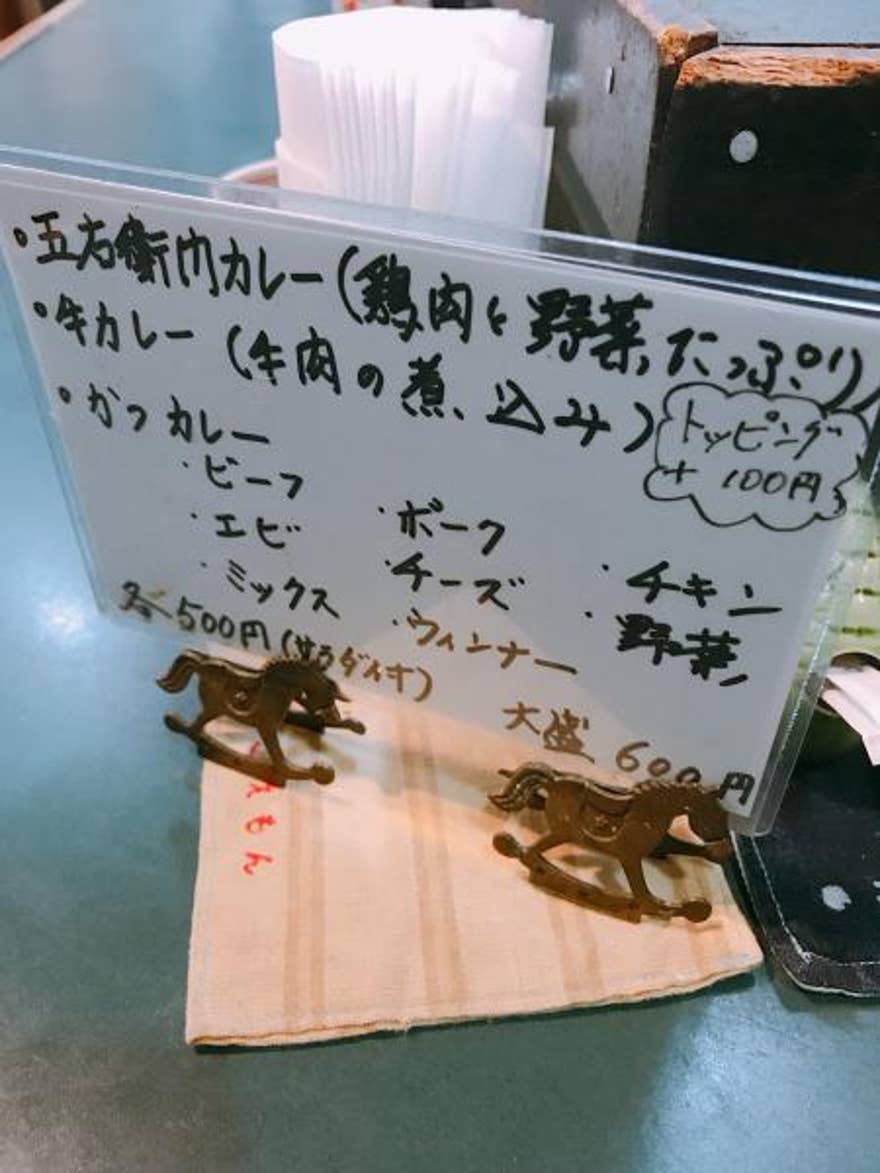 ・五右衛門カレー(鶏肉と野菜たっぷり)
・牛カレー(牛肉の煮込み)
・かつカレー
トッピング
+100円
・ビーフ ・ポーク ・チキン
・エビ ・チーズ ・野菜
・ミックス ・ウィンナー
各500円(サラダ付) 大盛600円
えもん